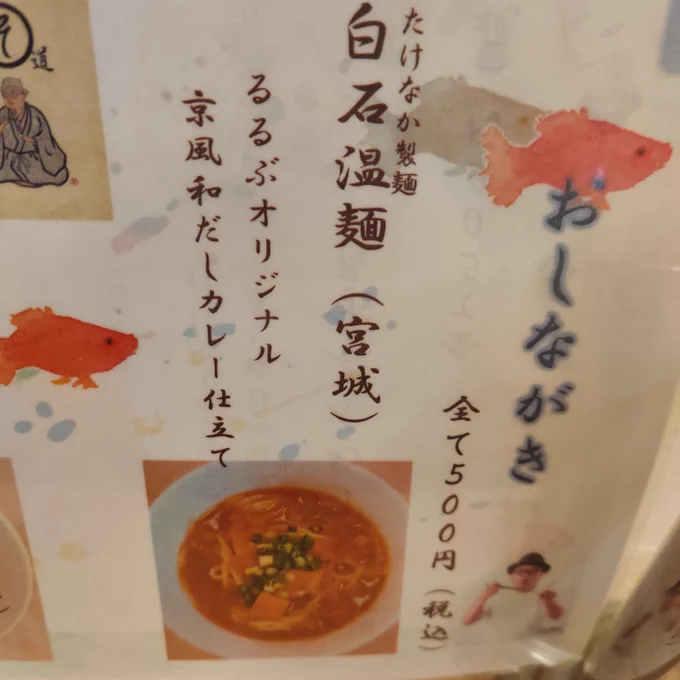 おしながき
全て500円（税込）
たけなか製麺
白石温麺（宮城）
るるぶオリジナル
京風和だしカレー仕立て
道